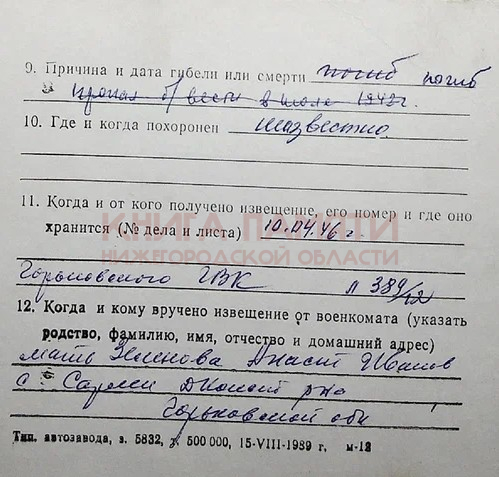 9. Причина и дата гибели или смерти погиб погиб
в пропал б/вести в июле 1942г.
10. Где и когда похоронен неизвестно
11. Когда и от кого получено извещение, его номер и где оно
КНИГА ПАМЯТИ
хранится (№ дела и листа) 10.04.46 г
НИЖЕГОРОДСКОЙ ОБЛАСТИ
Горьковского ГВК л 389/12
12. Когда и кому вручено извещение от военкомата (указать
родство, фамилию, имя, отчество и домашний адрес)
мать Иванов
с Сарлей р-на
Горьковской обл
Тип. автозавода, з. 5832, т. 500 000, 15-VIII-1989 г. м-12